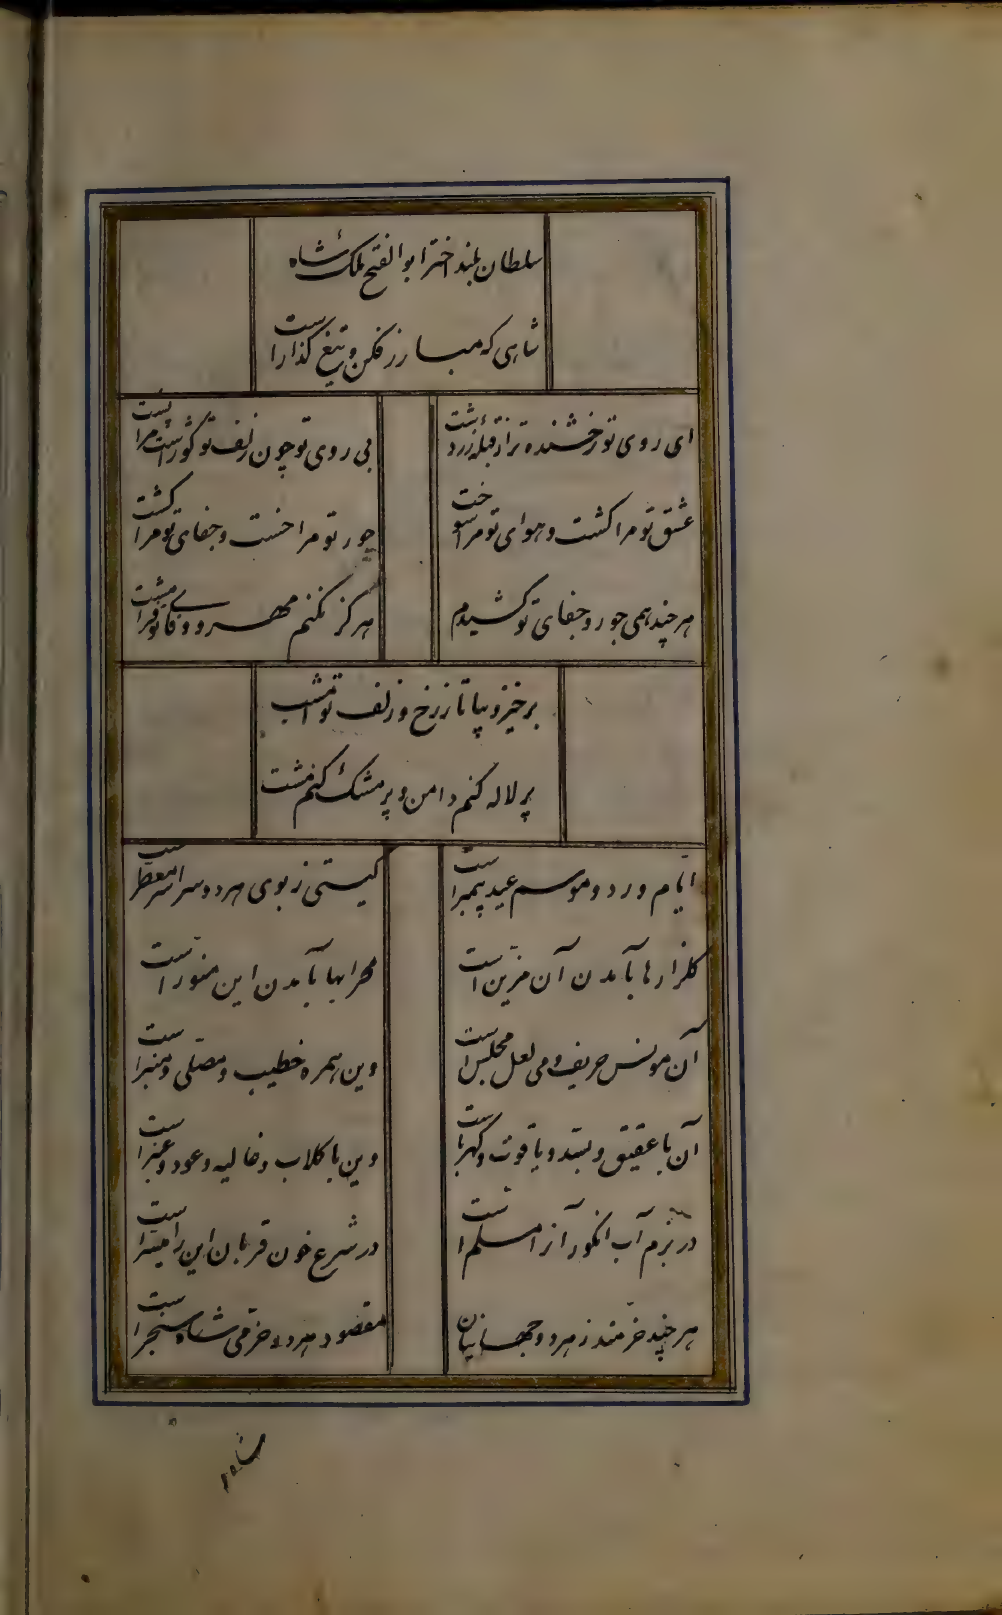 سلطان بلند اختر ابو الفتح ملک شاه
شاهی که مبارز فکن و تیغ گذارا ست
ای روی تو رخشنده تر از قبله زردشت
بی روی تو چون زلف تو گوژ است مرا پشت
عشق تو مرا کشت و هوای تو مرا سوخت
جور تو مرا خست و جفای تو مرا کشت
هر چند همی جور و جفای تو کشیدم
هرگز نکنم مهر و وفای تو فرامشت
برخیز و بیا تا ز رخ و زلف تو امشب
پر لاله کنم دامن و پر مشک کنم مشت
ایام ورد و موسم عید پیمبرا ست
کیتی ز بوی هر دو سراسر معطر ست
کلزارها بآمدن آن مزین است
محرابها بآمدن این منور است
آن مونس حریف و می لعل مجلس است
وین همره خطیب و مصلی و منبرا ست
آن با عقیق و بسد و یاقوت و کهربا ست
وین با کلاب و غالیه و عود و عنبرا ست
در بزم آب انکور آنرا مسلم است
در شرع خون قربان این را میسرا ست
هر چند خرمند ز هر دو جهانیان
مقصود هر دو خرمی شاه سنجرا ست
شاه